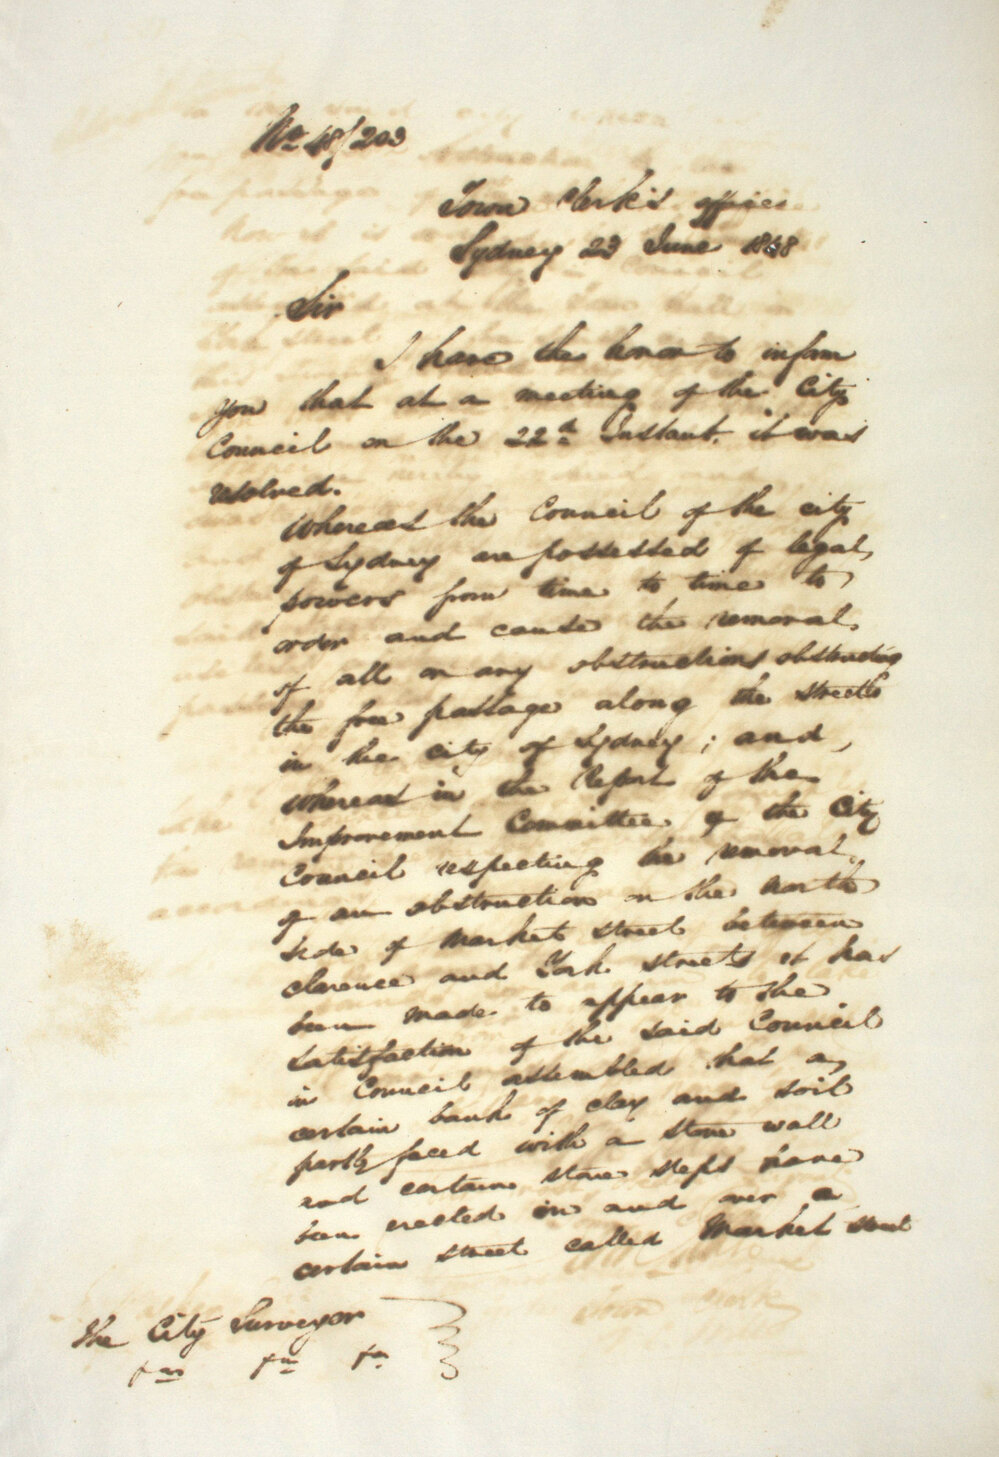 No 48/203
Town Clerk's Office
Sydney 23 June 1848
Sir
I have the honor to inform
you that at a meeting of the City
Council on the 22d Instant. it was
resolved.
Whereas the Council of the city
of Sydney are possessed of legal
powers from time to time to
order and cause the removal
of all or any obstructions obstructing
the free passage along the streets
in the city of Sydney; and,
whereas in the Report of the
Improvement Committee of the City
Council respecting the removal
of an obstruction on the North
side of Market street between
Clarence and York streets it has
been made to appear to the
satisfaction of the said Council
in Council assembled that a
certain bank of clay and soil
partly faced with a stone wall
and certain stone steps have
been erected in and over a
certain street called Market street
The City Surveyor